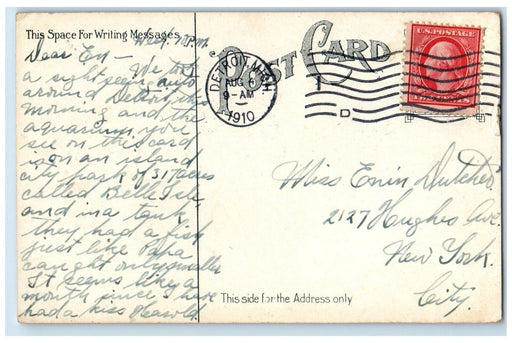 This Space For Writing Messages
Wed. P.M.
Dear En— We took
a sight seeing auto
around Detroit this
morning and the
aquarium you
see on this card
is on an island
city park of 317 acres
called Belle Isle
and in a tank
they had a fish
just like Papa
caught only smaller
It seems like a
month since I have
had a kiss
POST CARD
DETROIT, MICH.
AUG 6
9-AM
1910
D
U.S. POSTAGE
Miss Enin Dutcher
2127 Hughes Ave.
New York.
City.
This side for the Address only